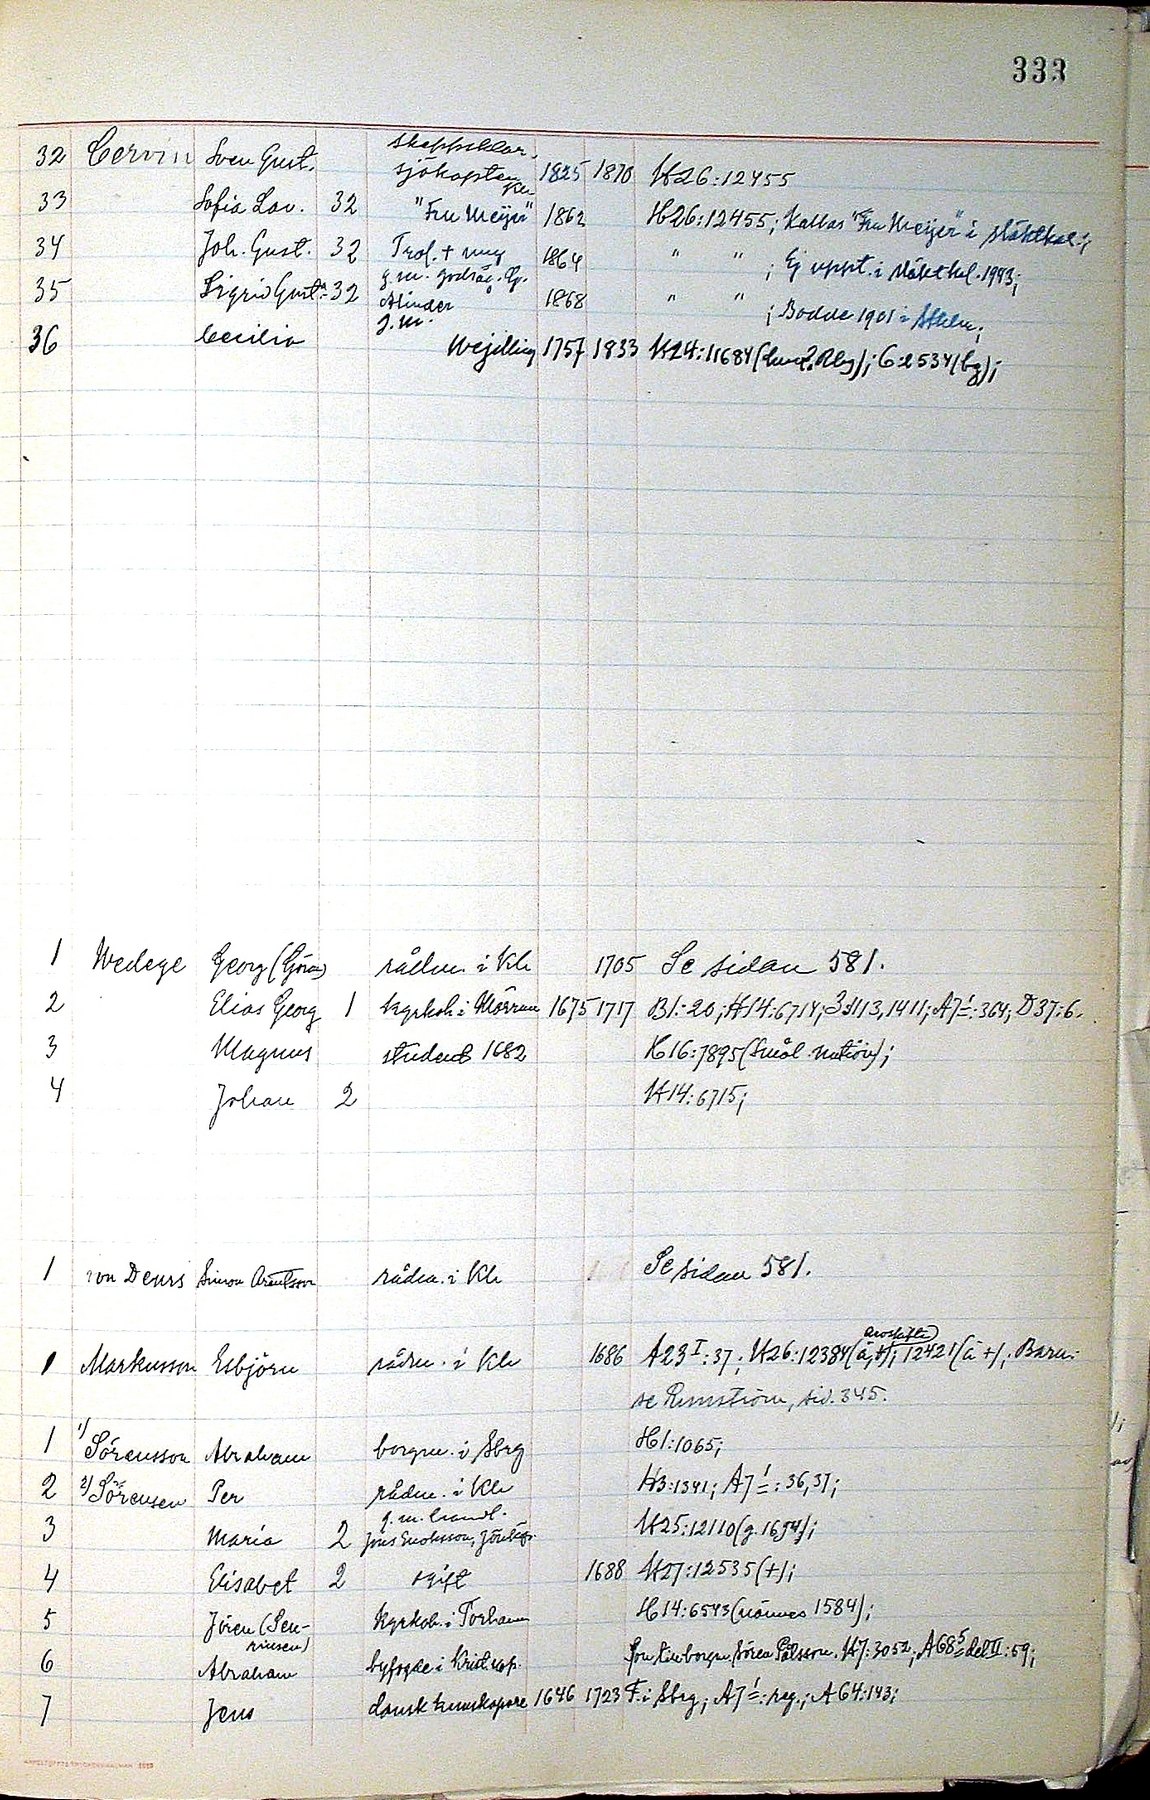 333
32 Cervin Sven Gust. skeppsklar. sjökapten 1825 1870 H26:12455
33 Sofia Lov. 32 "Fru Meijer" 1862 H26:12455; Kallas "Fru Meijer" i släktkal.;
34 Joh. Gust. 32 Trol. + ung 1864 " " ; Ej uppt. i släktkal. 1943;
35 Sigrid Gust:a 32 g.m. godsäg. 1868 " " ; Bodde 1901 i Sthlm;
36 Cecilia g.m. Wejlling 1757 1833 H24:11684 ; C:2534(bg);
1 Wedege Georg (Göran) rådm. i Kh 1705 Se sidan 581.
2 Elias Georg 1 kyrkoh. i Mörrum 1675 1717 B1:20; H14:6714; 1411; A7 1/=:364; D37:6.
3 Magnus student 1682 H16:7895 (Smål. nation);
4 Johan 2 H14:6715;
1 von Deurs Simon Arentsson rådm. i Kh Se sidan 581.
1 Markusson Esbjörn rådm. i Kh 1686 A23 I:37; H26:12384 (å,+); 12421 (å +); Barn:
se Rumström, sid. 345.
1 1/ Sörensson Abraham borgm. i Sbrg H1:1065;
2 2/ Sörensen Per rådm. i Kh H3:1341; A7 1/=:36,37;
3 Maria 2 g.m. H25:12110 (g. 1654);
4 Elisabet 2 ogift 1688 H27:12535 (+);
5 Jören (Sen-
rinsen) kyrkoh. i Torhamn H14:6543 (nämnes 1584);
6 Abraham byfogde i Kristianop. Son t. borgm. Sören Pålsson. H7:3052; A68 5/= del II:59;
7 Jens dansk kunskapare 1646 1723 F. i Sbrg; A7 1/=:reg.; A64:143;